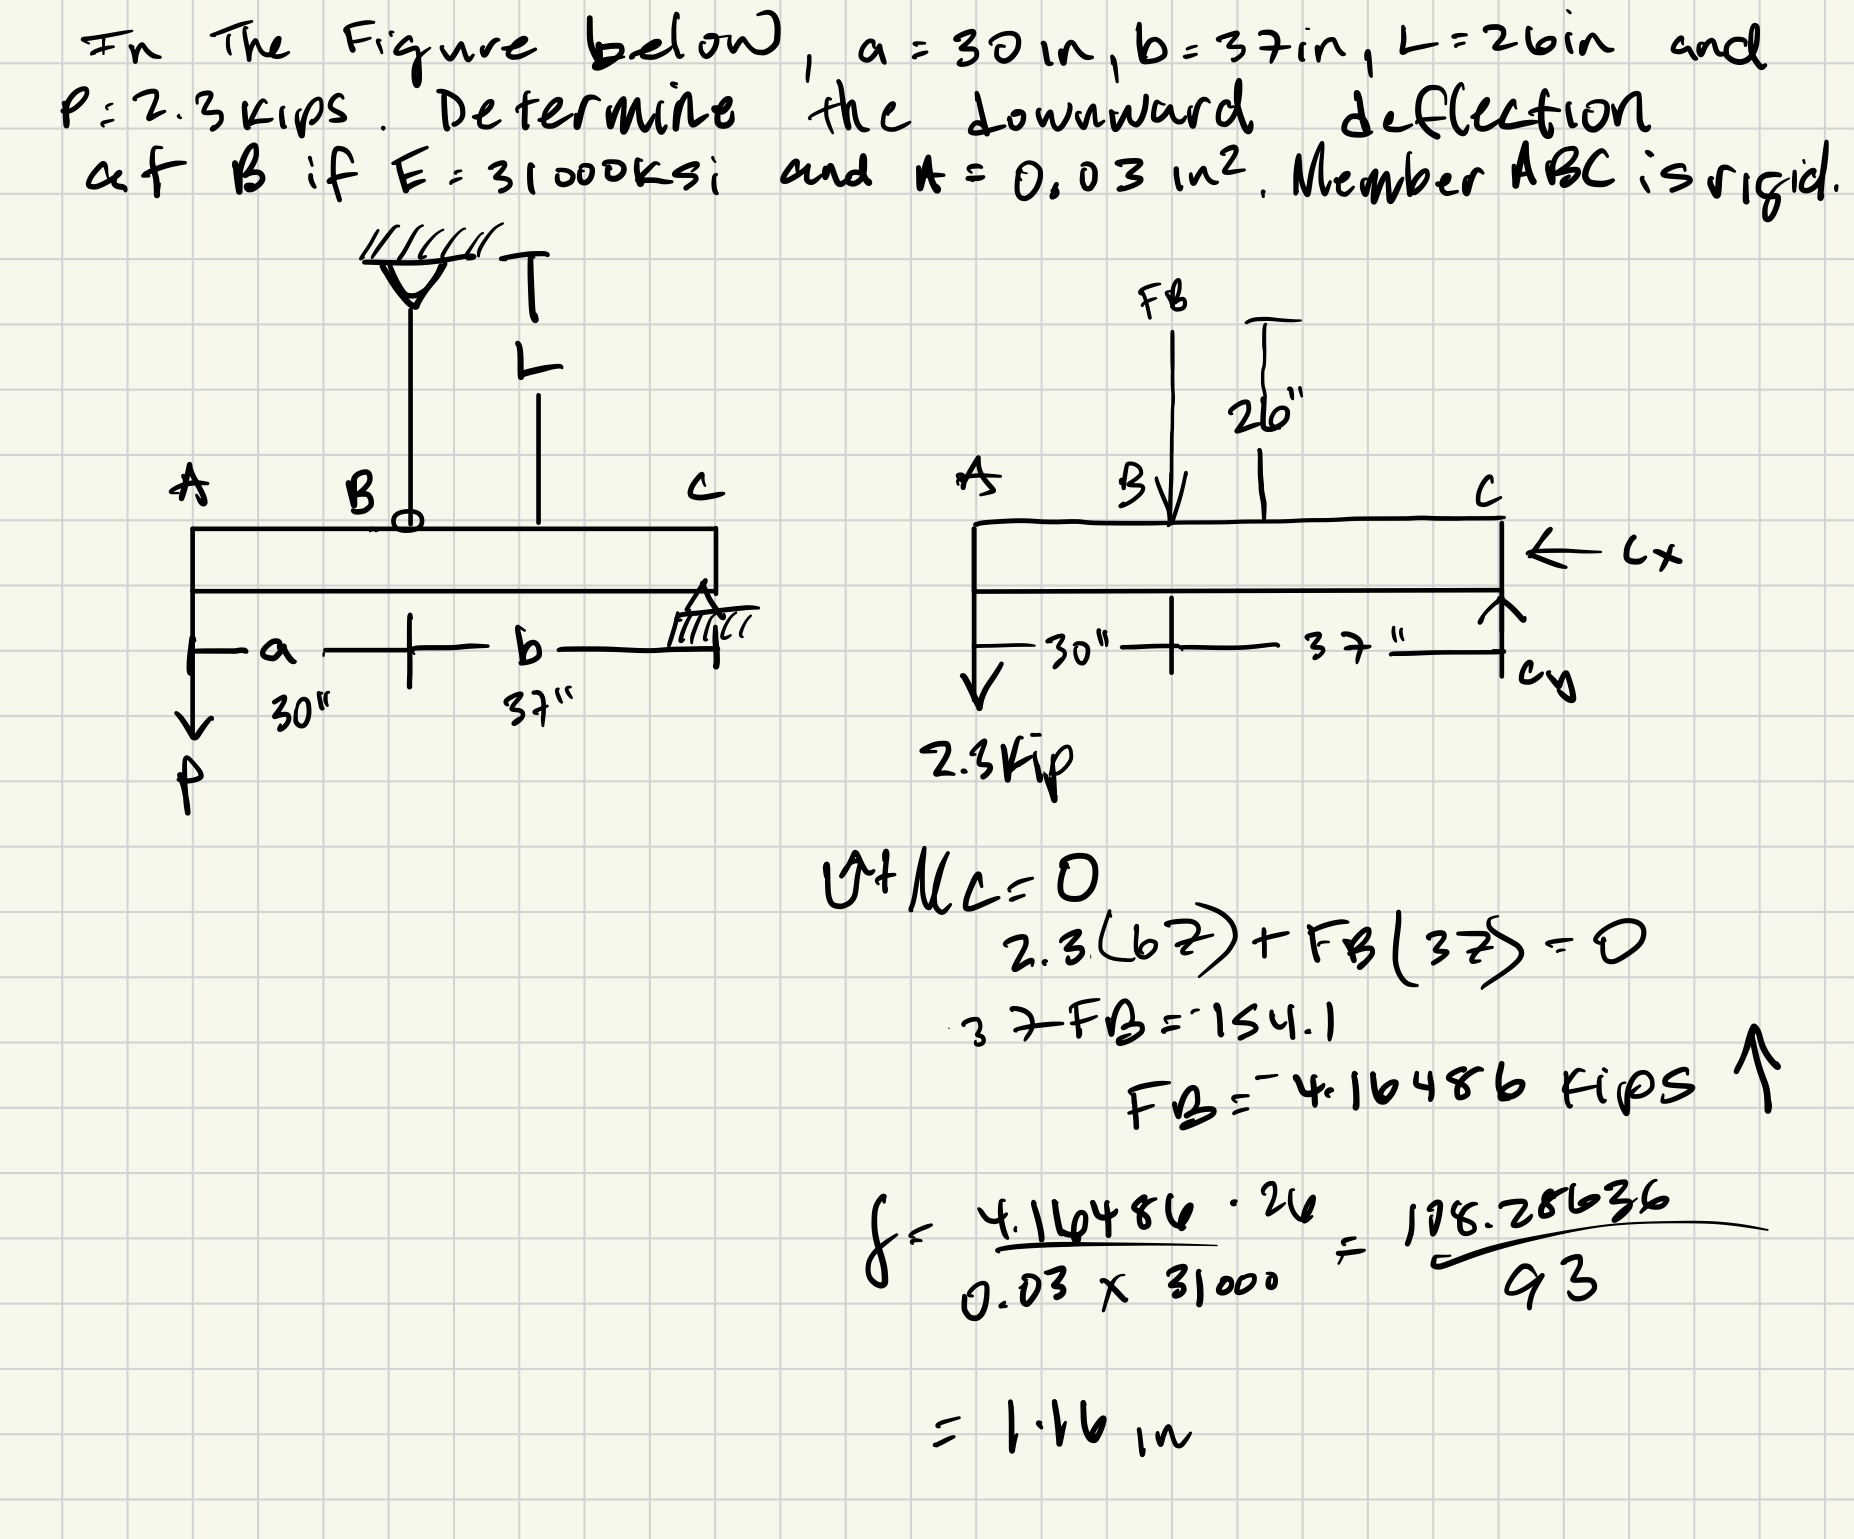 In The Figure below, a = 30 in, b = 37in, L = 26in and
P = 2.3 kips. Determine the downward deflection
at B if E = 31000ksi and A = 0.03 in². Member ABC is rigid.
L
A B C
a b
30" 37"
P
FB
26"
A B C
Cx
30" 37"
Cy
2.3 Kip
↺+ Mc = 0
2.3(67) + FB(37) = 0
37 FB = -154.1
FB = -4.16486 kips ↑
δ = 4.16486 · 26 / 0.03 × 31000 = 108.28636 / 93
= 1.16 in